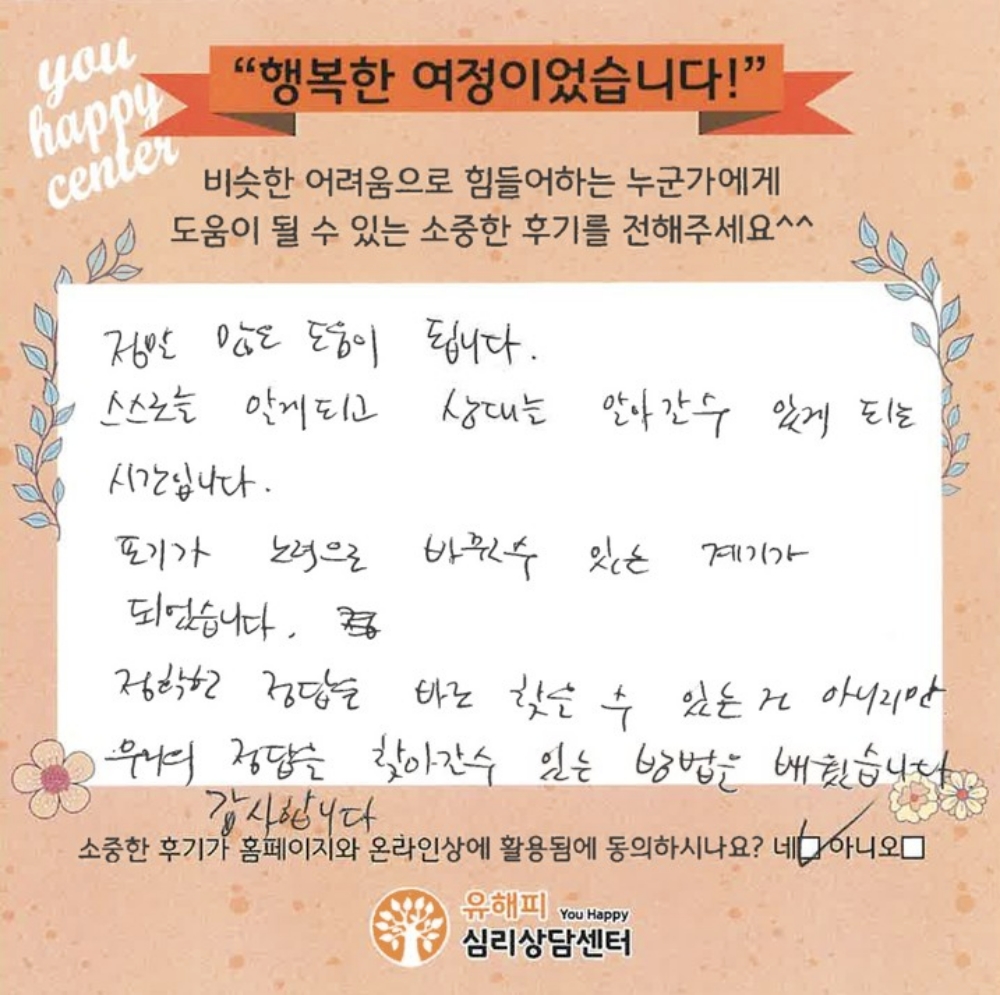 you
happy
center
“행복한 여정이었습니다!”
비슷한 어려움으로 힘들어하는 누군가에게
도움이 될 수 있는 소중한 후기를 전해주세요^^
정말 많은 도움이 됩니다.
스스로를 알게되고 상대는 알아갈수 있게 되는
시간입니다.
포기가 노력으로 바뀔수 있는 계기가
되었습니다.
정확한 정답을 바로 찾을 수 있는건 아니지만
우리의 정답을 찾아갈수 있는 방법을 배웠습니다
감사합니다
소중한 후기가 홈페이지와 온라인상에 활용됨에 동의하시나요? 네☑ 아니오☐
유해피 You Happy
심리상담센터